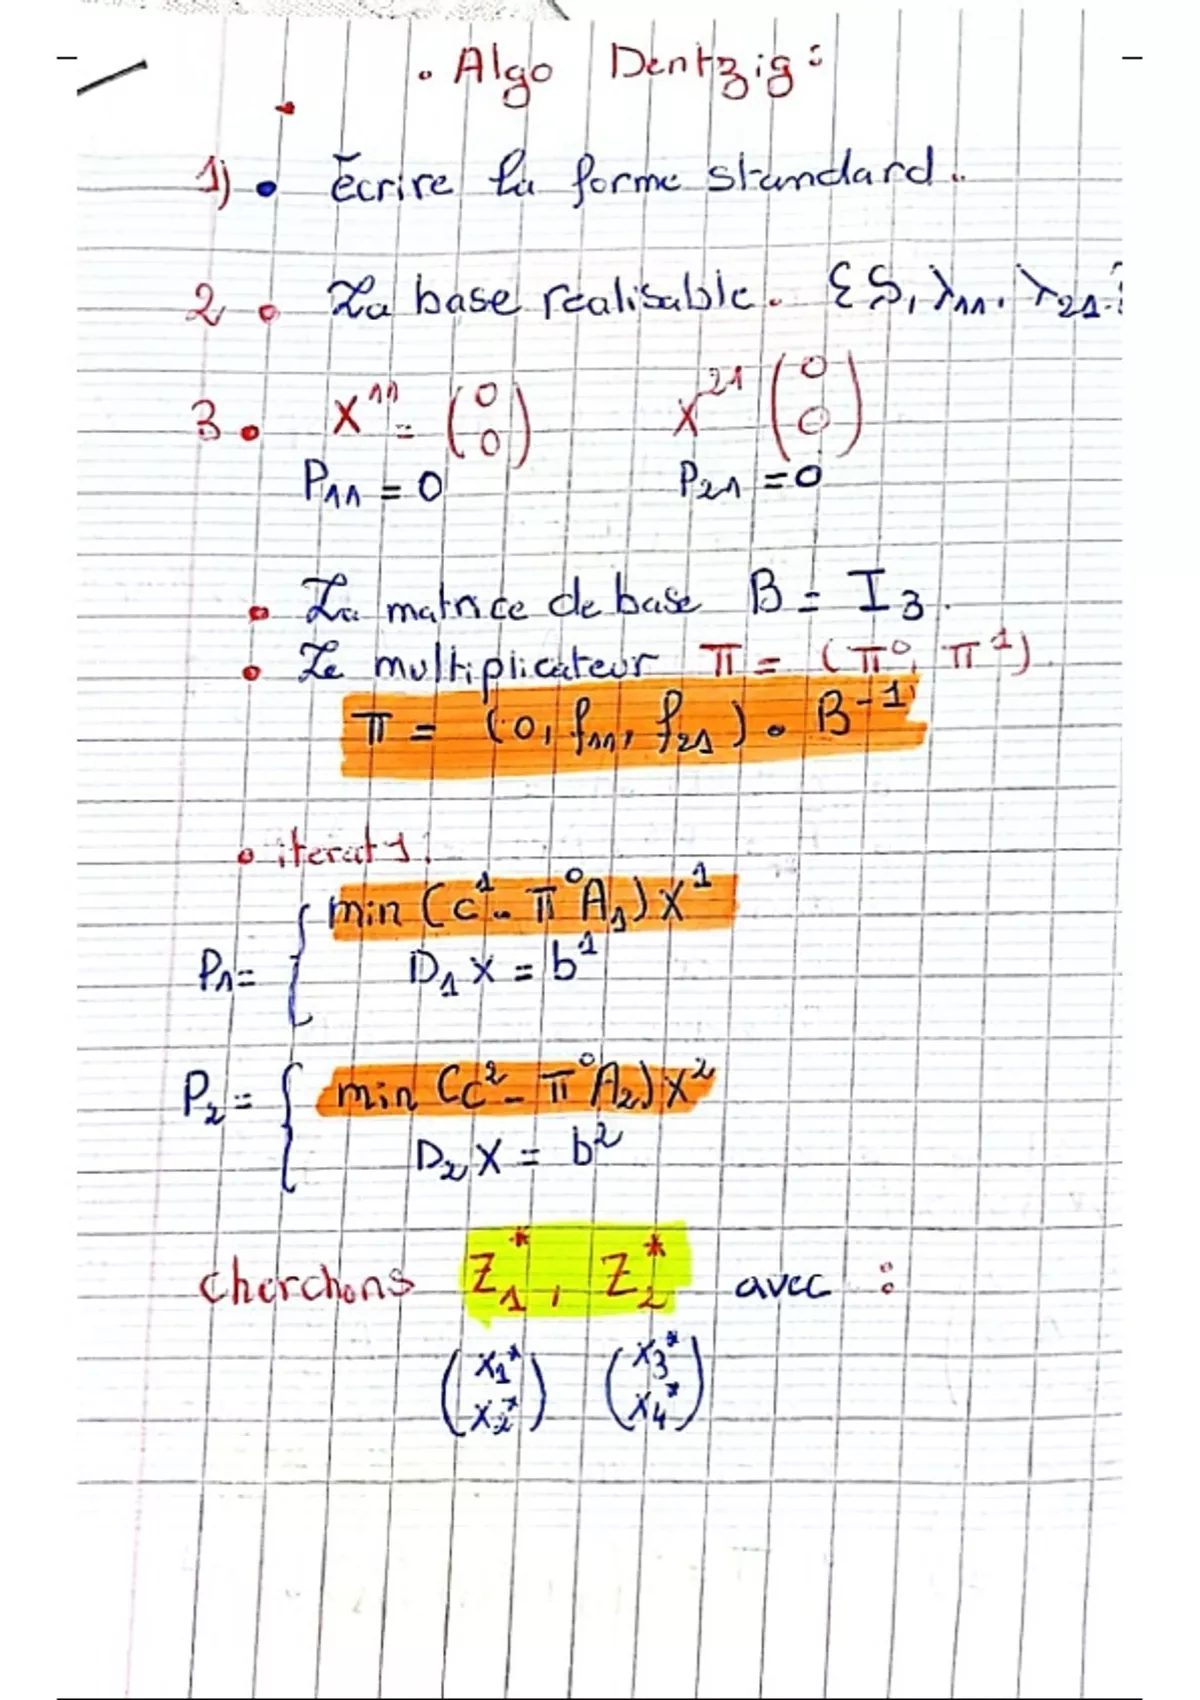 • Algo Dentzig :
1) • Ecrire la forme standard.
2 • La base realisable. {S, λ11, λ21.}
3 • X¹¹ = (0 0) X²¹ (0 0)
P11 = 0 P21 = 0
• La matrice de base B = I3.
• Le multiplicateur π = (π⁰, π¹).
π = (0, f11, f21) • B⁻¹
• iterat 1:
min (c¹ - π⁰A1) X¹
P1 = { D1 X = b¹
min (c² - π⁰A2) X²
P2 = { D2 X = b²
cherchons Z1*, Z2* avec :
(x1* x2*) (x3* x4*)